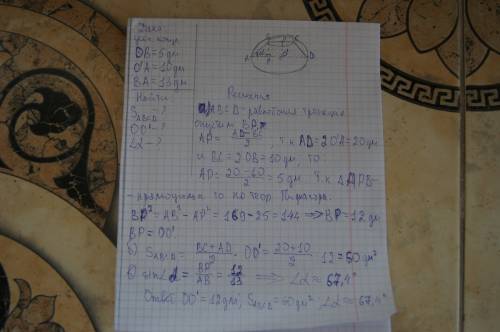 Дано:
усеч. конус
OB=5дм
O'A=10дм
BA=13дм
Найти
S ABCD - ?
OO' - ?
∠α - ?
Решение
а) ABCD - равнобокая трапеция
опустим BP,
AP = (AD-BC)/2, т.к AD=2O'A=20дм
и BC=2OB=10дм, то
AP = (20-10)/2 = 5дм т.к ΔAPB-
-прямоугол. то по теор. Пифагора.
BP²=AB²-AP²=169-25=144 ⟹ BP=12дм
BP=OO'
б) S ABCD = (BC+AD)/2 · OO' = (20+10)/2 · 12=60дм²
в) sin∠α = BP/AB = 12/13 ⟹ ∠α≈67,4°
Ответ OO'=12дм; S ABCD=60дм² ∠α≈67,4°